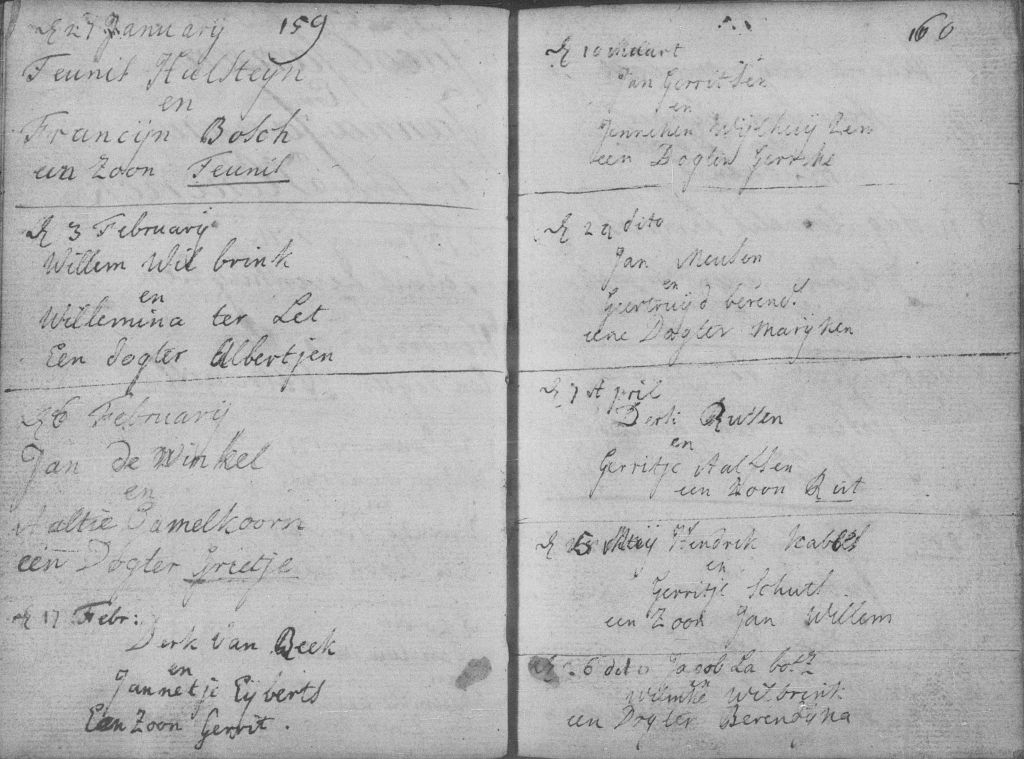 159
d 27 January
Teunis Hulsteyn
en
Francijn Bosch
een Zoon Teunis
d 3 Februarij
Willem Wil brink
en
Willemina ter Let
Een dogter Albertjen
d 6 Februarij
Jan de Winkel
en
Aaltie Gamelkoorn
een Dogter Grietje
d 17 Febr:
Derk van Beek
en
Jannetje Eijberts
Een Zoon Gerrit.
160
d 10 Maart
Jan Gerritsen
en
Jenneken
een Dogter Gerritje
d 29 dito
Jan Meusen
en
Geertruijd berends
eene Dogter Maryken
d 7 April
Derk Rutsen
en
Gerritje Aaltsen
een Zoon Rut
d 5 Meij Hendrik
en
Gerritje Schut
een Zoon Jan Willem
d 26 dito Jacob La
Wilmke Wilbrink
een Dogter Berendyna